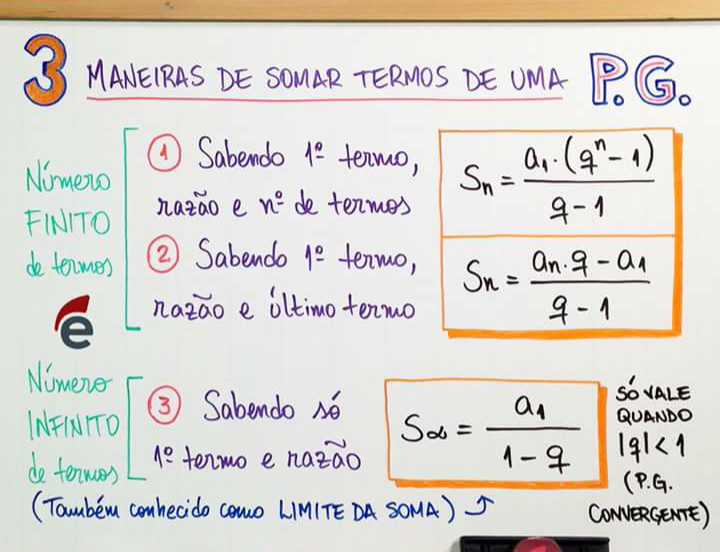 3 MANEIRAS DE SOMAR TERMOS DE UMA P.G.
Número
FINITO
de termos
① Sabendo 1º termo,
razão e nº de termos
Sn = a1.(q^n - 1) / q - 1
② Sabendo 1º termo,
razão e último termo
Sn = an.q - a1 / q - 1
e
Número
INFINITO
de termos
③ Sabendo só
1º termo e razão
S∞ = a1 / 1 - q
SÓ VALE
QUANDO
|q| < 1
(P.G.
CONVERGENTE)
(Também conhecido como LIMITE DA SOMA)